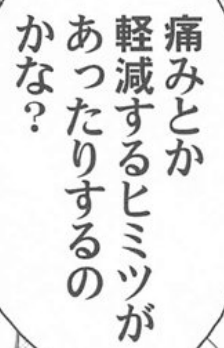 痛みとか
軽減するヒミツが
あったりするの
かな？